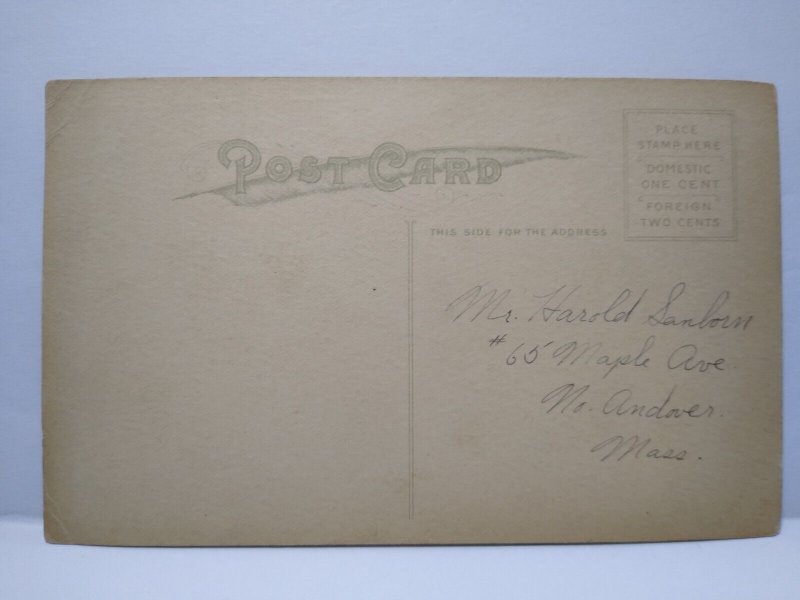 POST CARD
PLACE
STAMP HERE
DOMESTIC
ONE CENT
FOREIGN
TWO CENTS
THIS SIDE FOR THE ADDRESS
Mr. Harold Sanborn
#65 Maple Ave.
No. Andover.
Mass.